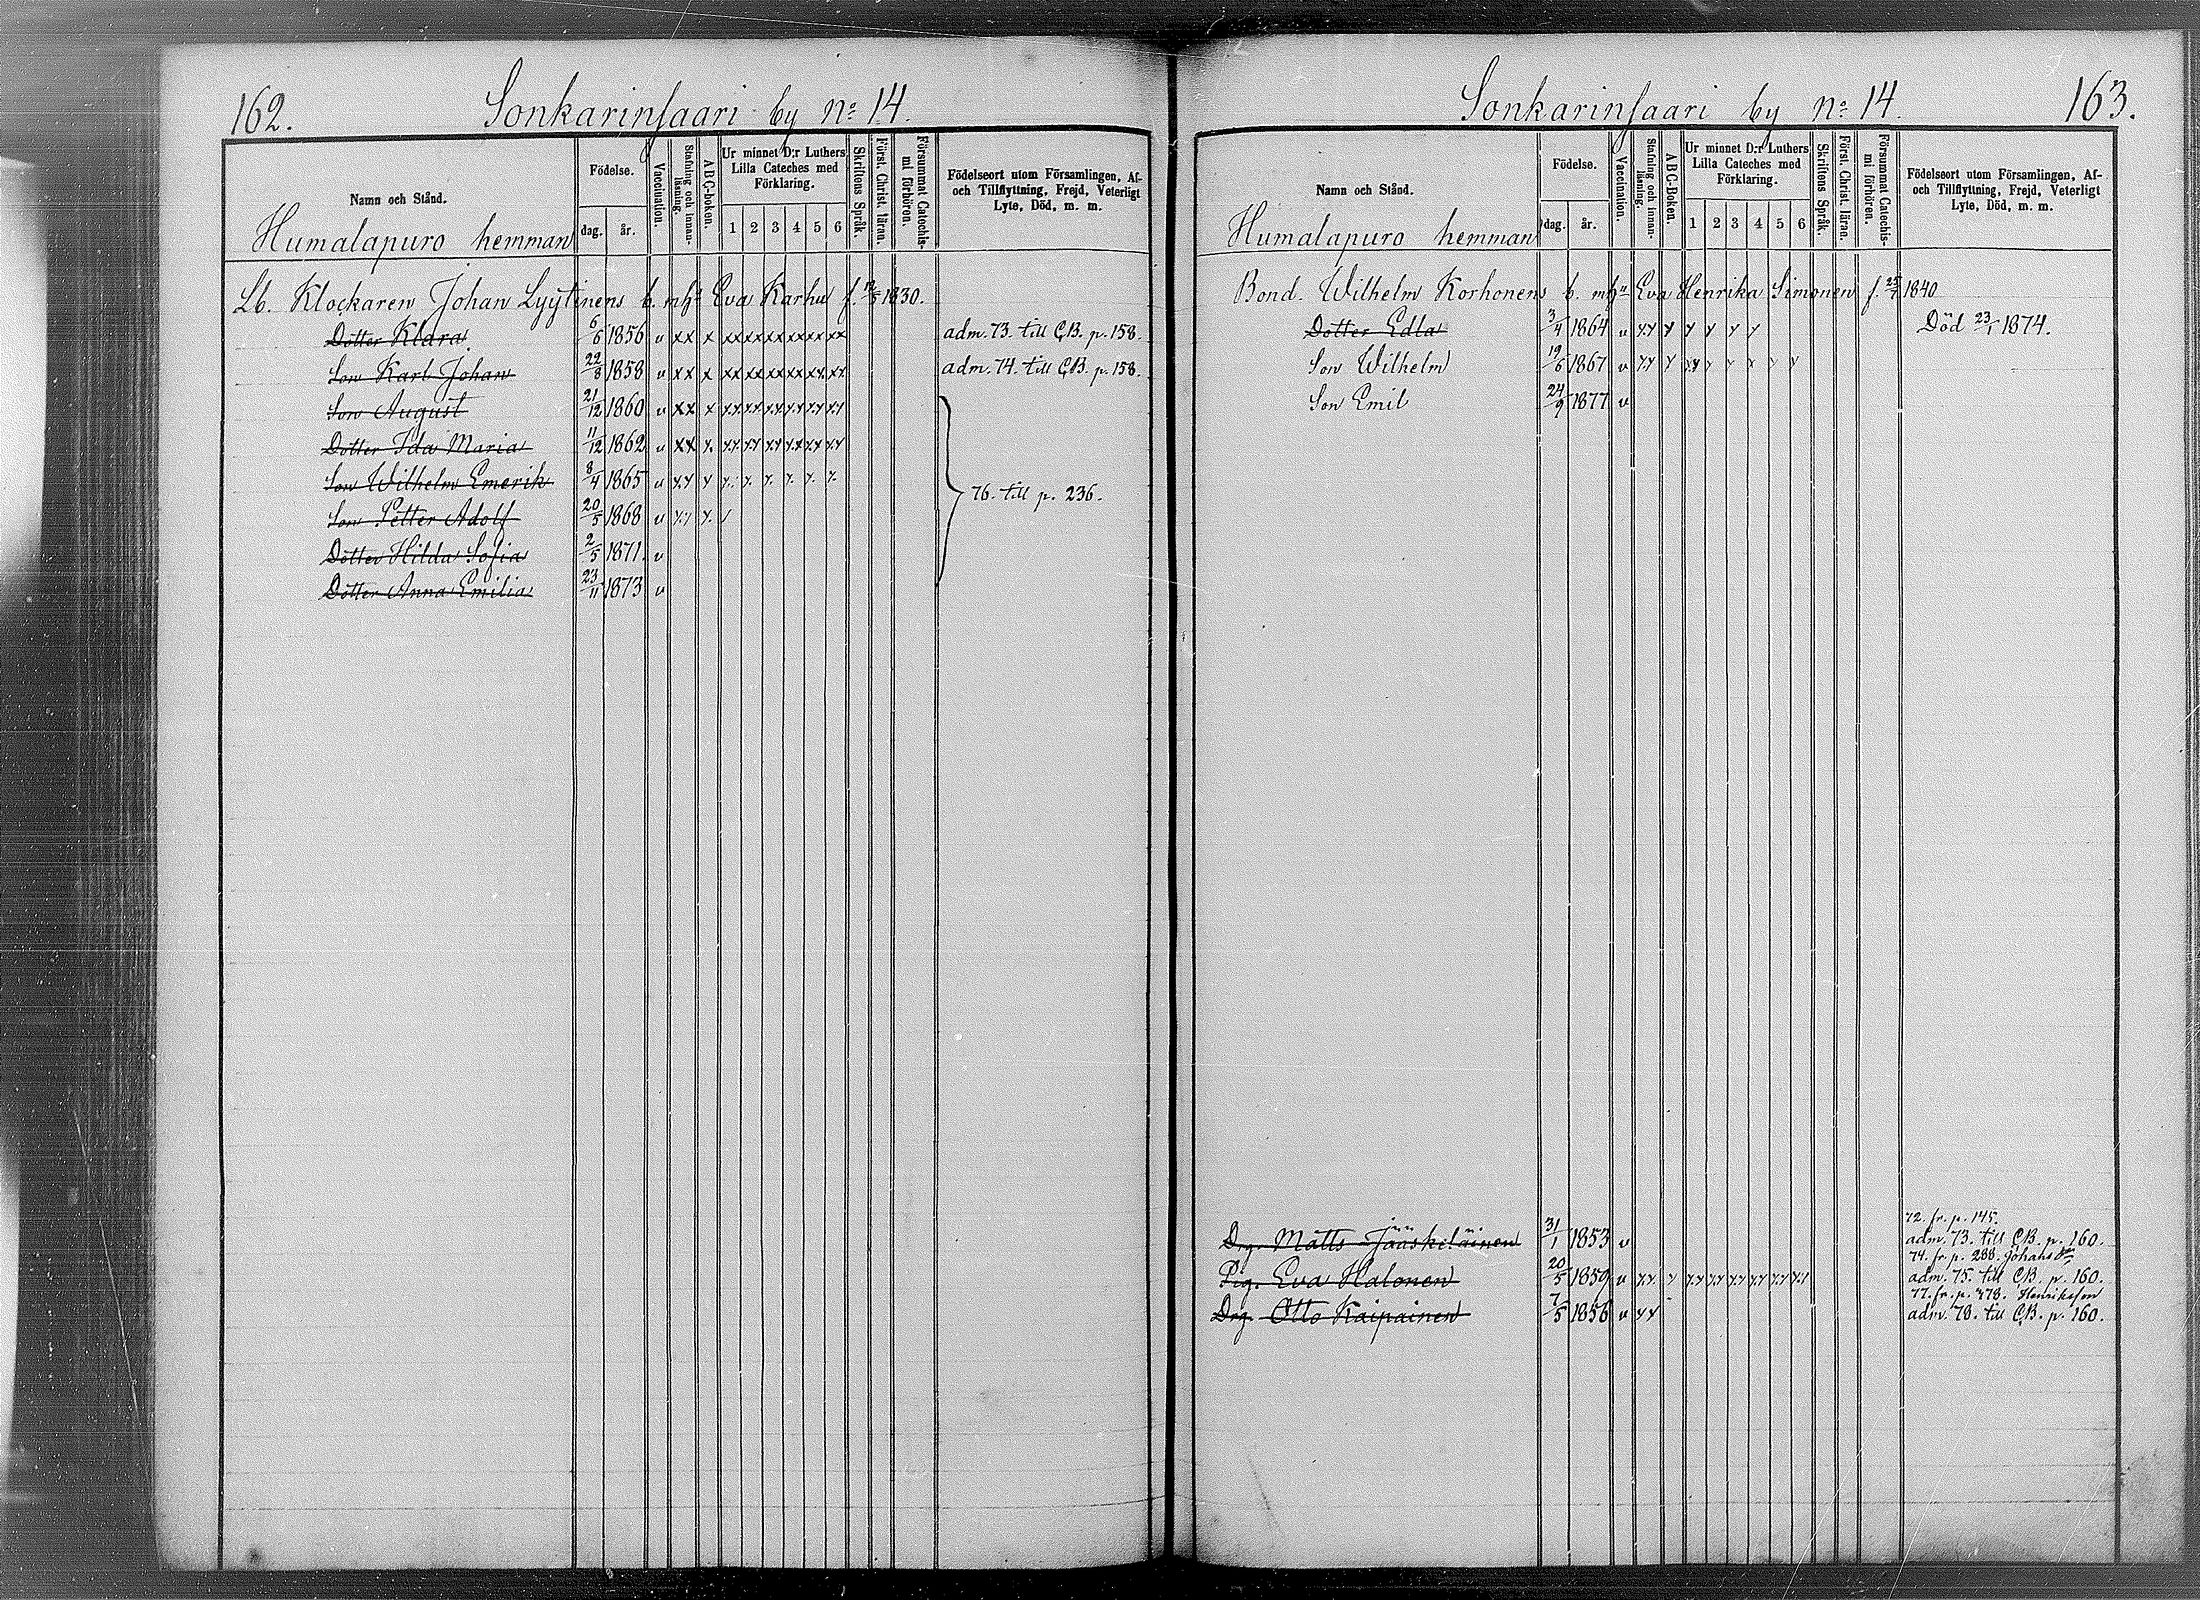 162.
Sonkarinsaari by No 14.
Namn och Stånd.
Födelse.
dag.
år.
Vaccination.
Stafning och innanläsning.
ABC-boken.
Ur minnet D:r Luthers Lilla Cateches med Förklaring.
1 2 3 4 5 6
Skriftens Språk.
Först. Christ. läran.
Försummat Catechismi förhören.
Födelseort utom Församlingen, Af- och Tillflyttning, Frejd, Veterligt Lyte, Död, m. m.
Humalapuro hemman
Lb. Klockaren Johan Lyytinens b. m. Eva Karhu f. 12/5 1830.
Dotter Klara 6/6 1856 v xx x xx xx xx xx xx xx adm. 73. till C.B. p. 158.
Son Karl Johan 22/8 1858 v xx x xx xx xx xx xx xx adm. 74. till C.B. p. 158.
Son August 21/12 1860 v xx x xx xx xx xx xx xx
Dotter Ida Maria 11/12 1862 v xx x xx xx xx xx xx xx
Son Wilhelm Emerik 8/4 1865 v xx x x. x. x. x. x. x. 76. till p. 236.
Son Petter Adolf 20/5 1868 v x/ x. /
Dotter Hilda Sofia 2/5 1871. v
Dotter Anna Emilia 23/11 1873 v
163.
Sonkarinsaari by No 14.
Namn och Stånd.
Födelse.
dag.
år.
Vaccination.
Stafning och innanläsning.
ABC-boken.
Ur minnet D:r Luthers Lilla Cateches med Förklaring.
1 2 3 4 5 6
Skriftens Språk.
Först. Christ. läran.
Försummat Catechismi förhören.
Födelseort utom Församlingen, Af- och Tillflyttning, Frejd, Veterligt Lyte, Död, m. m.
Humalapuro hemman
Bond. Wilhelm Korhonens b. m. Eva Henrika Simonen f. 25/7 1840
Dotter Edla 3/4 1864 v xx x x x x x Död 23/1 1874.
Son Wilhelm 19/6 1867 v xx x xx x x x x x
Son Emil 24/9 1877 v
72. fr. p. 145.
Drg. Matts Jääskeläinen 31/1 1853 v adm. 73. till C.B. p. 160.
74. fr. p. 288. Johansdr
Pig. Eva Halonen 20/5 1859 v xx x xx xx xx xx xx x/ adm. 75. till C.B. p. 160.
77. fr. p. 178. Henriksson
Drg. Otto Kaipainen 7/5 1856 v xx adm. 78. till C.B. p. 160.